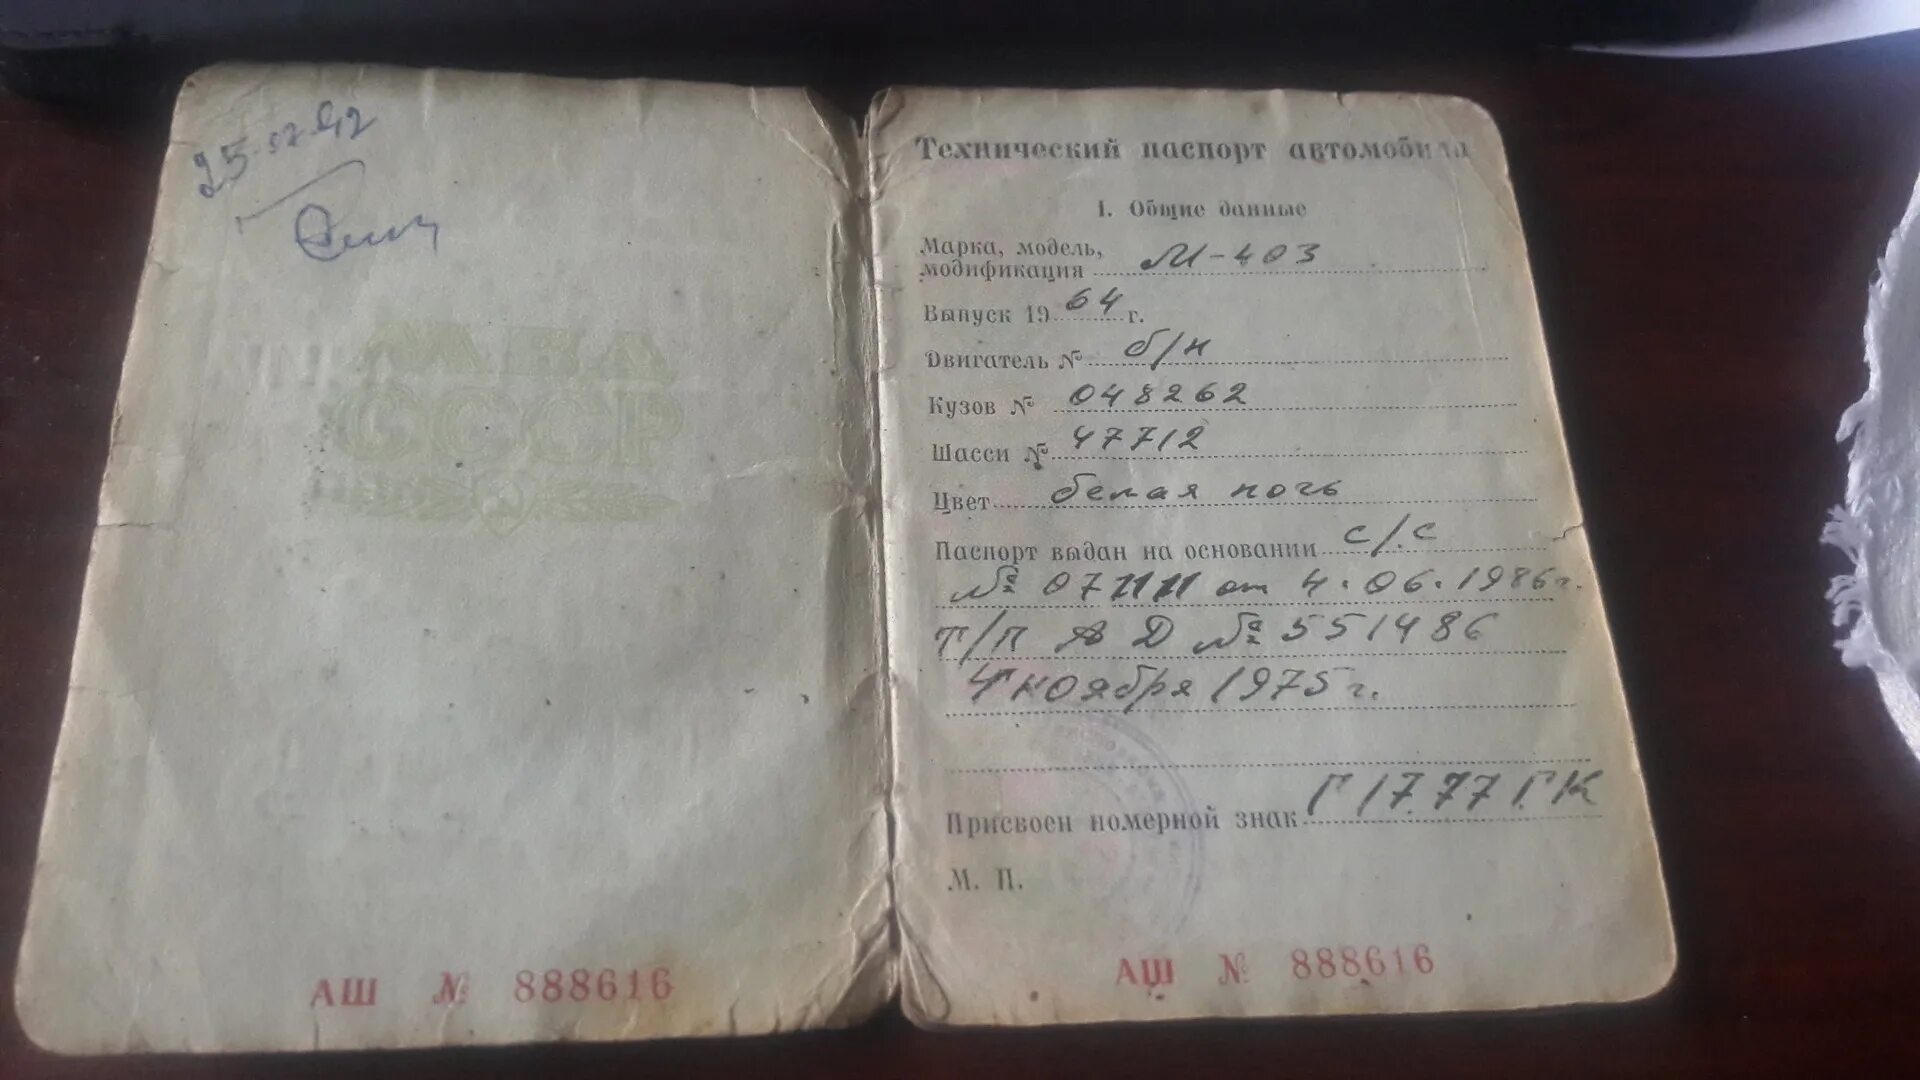 25.02.92
АШ № 888616
Технический паспорт автомобиля
1. Общие данные
Марка, модель,
модификация М-403
Выпуск 1964 г.
Двигатель № б/н
Кузов № 048262
Шасси № 47712
Цвет белая ночь
Паспорт выдан на основании с/с
№ 071111 от 4.06.1986г.
Т/П АД № 551486
4 ноября 1975 г.
Присвоен номерной знак Г1777ГК
М. П.
АШ № 888616